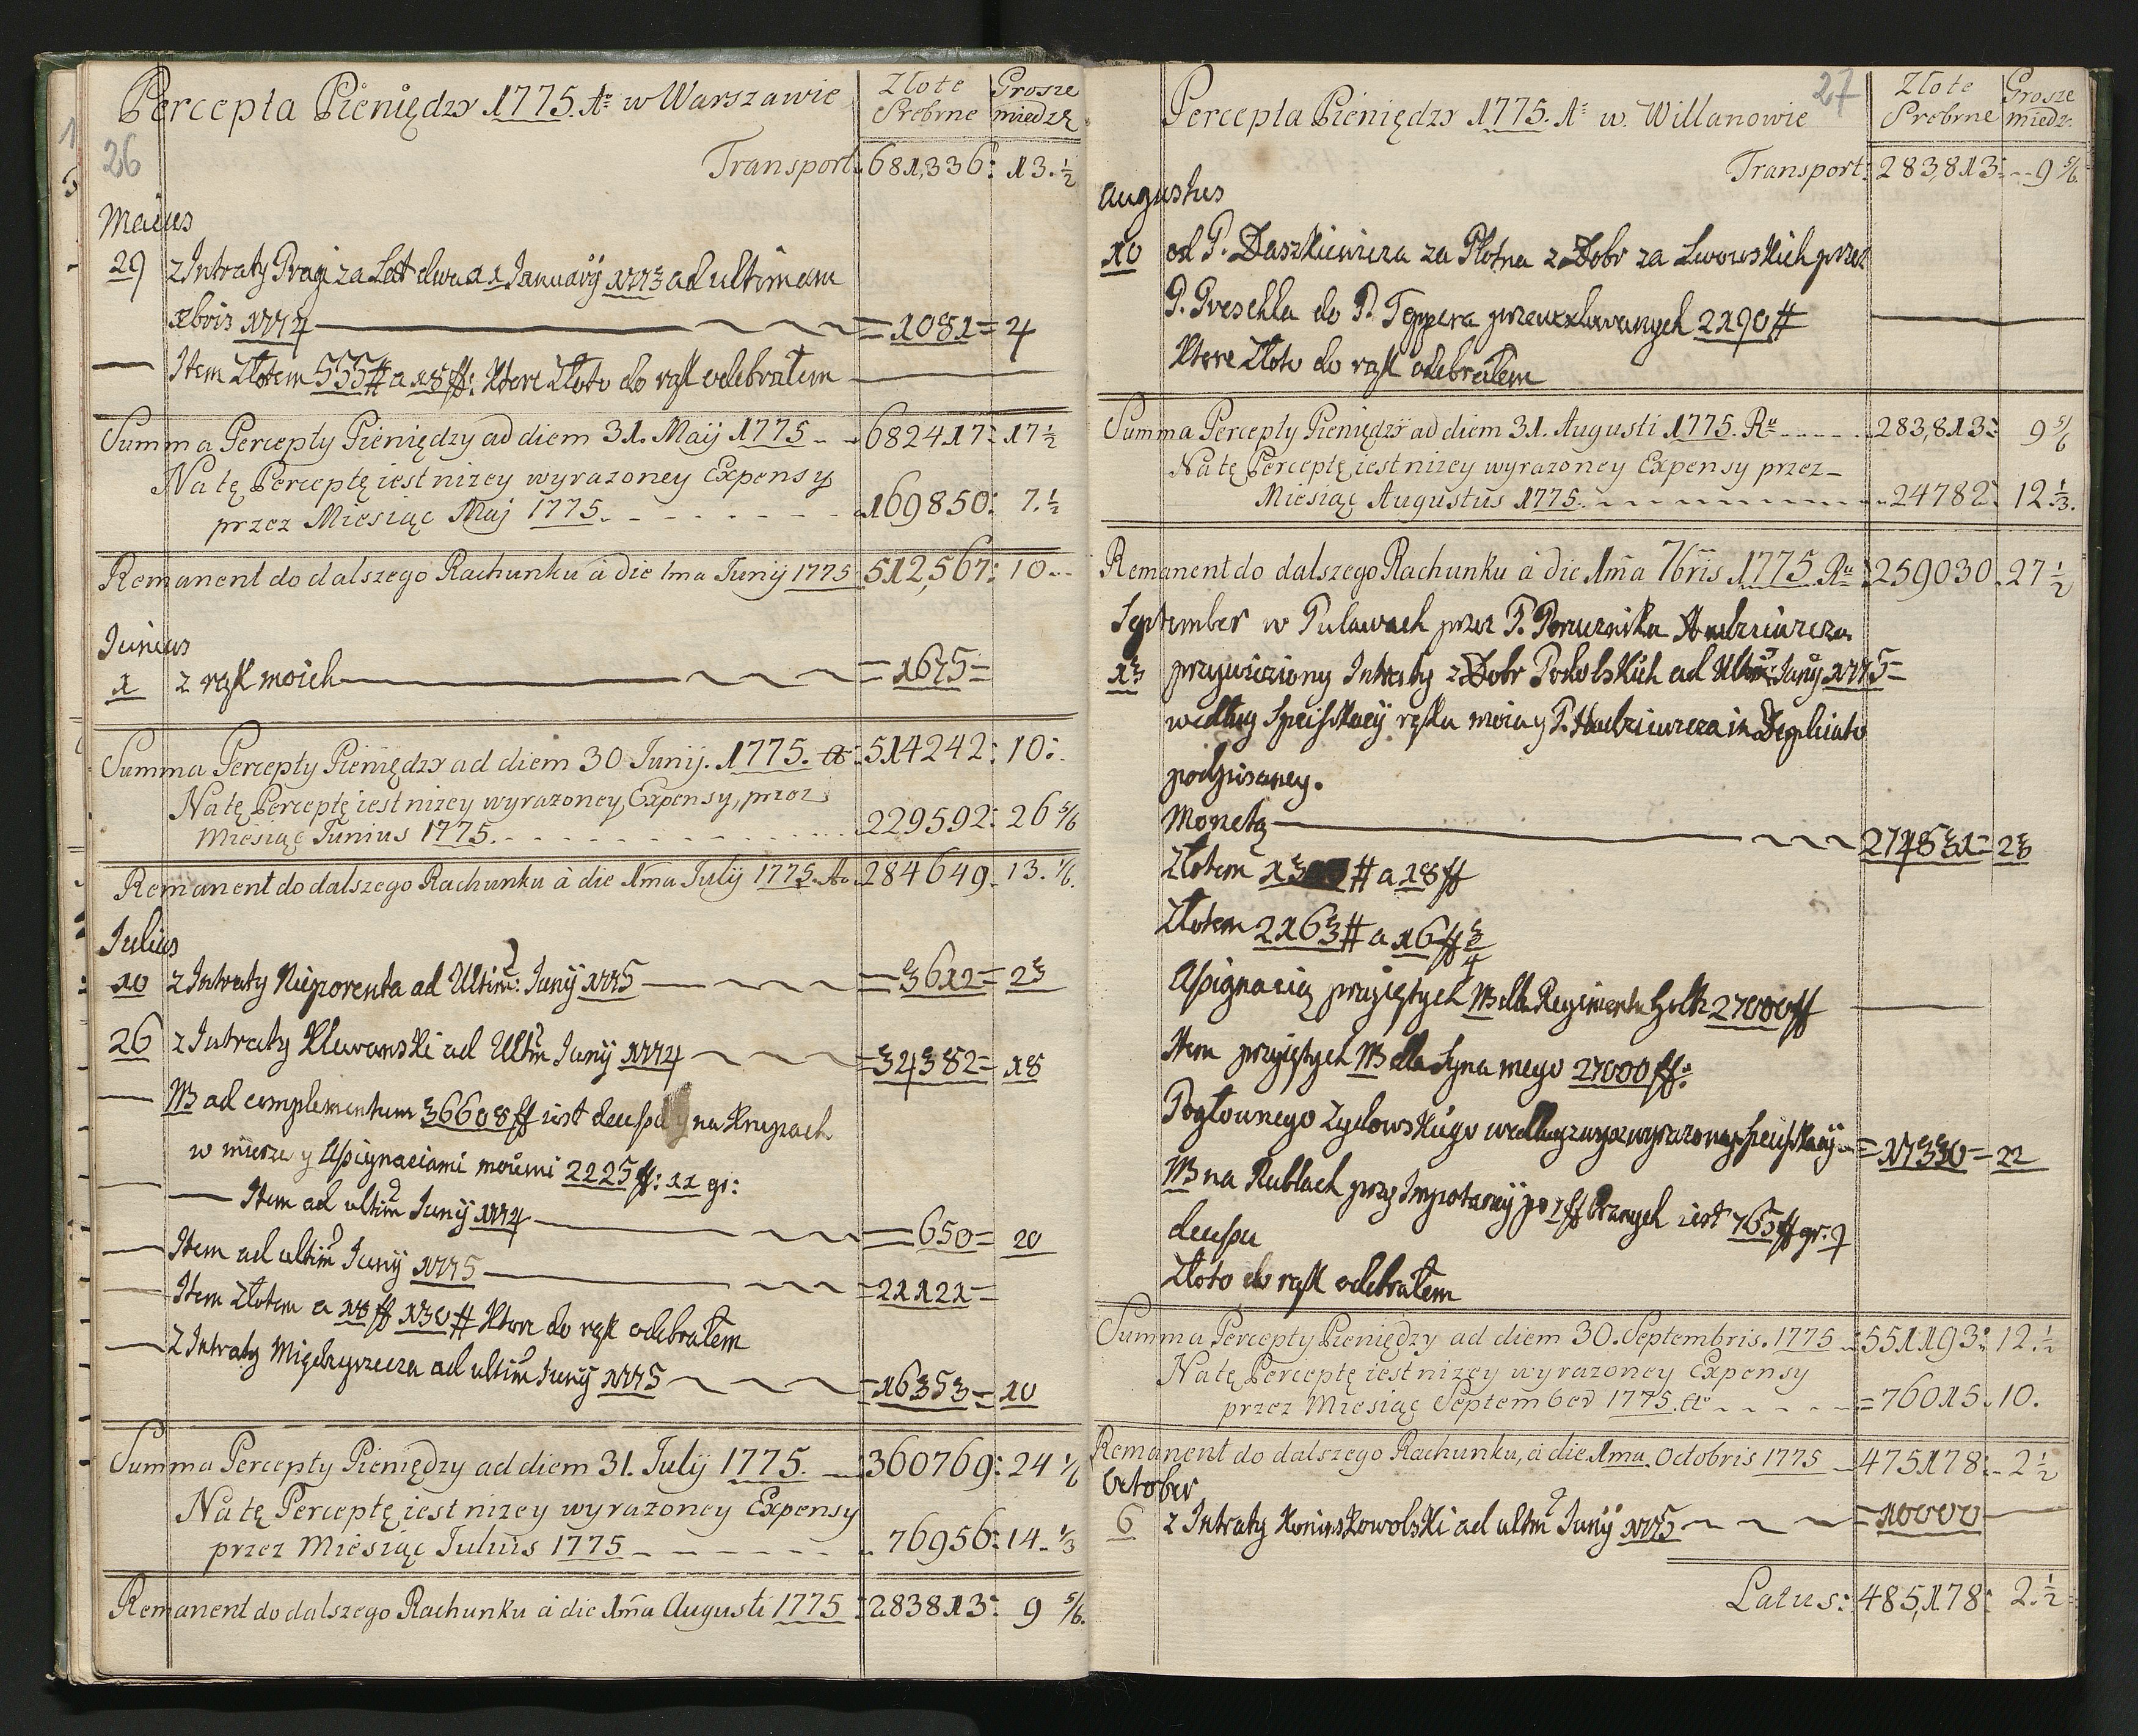 26
Percepta Pieniędzy 1775. Aº w Warszawie
Złote Srebrne
Grosze miedzę
Transport: 681,336: 13.½
Maius
29 z Intraty Pragi za Lat dwa a 1 January 1773 ad ultimam
xbris 1774 = 1081 = 4
Item Złotem 555# a 18ff: które Złoto do rąk odebrałem
Summa Percepty Pieniędzy ad diem 31. Maij 1775 682417: 17½
Na tę Perceptę iest nizey wyrazoney Expensy
przez Miesiąc Maj 1775. 169850: 7.½
Remanent do dalszego Rachunku à die 1ma Junij 1775 512,567: 10
Junius
1 z rąk moich = 1675 =
Summa Percepty Pieniędzy ad diem 30 Junij. 1775. 514242: 10:
Na tę Perceptę iest nizey wyrazoney Expensy, przez
Miesiąc Junius 1775. 229592: 26 5/6
Remanent do dalszego Rachunku à die 1ma Julij 1775. Aº 284649. 13. 1/6.
Julius
10 z Intraty Nieporenta ad Ultim: Junij 1775 = 3612 = 23
26 z Intraty Klewanski ad Ultim Junij 1774 = 34382 = 18
NB ad complementum 36608ff iest na Krupach
w mierze y Assignaciami moiemi 2225ff: 11 gr:
Item ad ultim Junij 1774 = 650 = 20
Item ad ultim Junij 1775 = 21121 =
Item Złotem a 18ff 130# które do rąk odebrałem
Z Intraty Międzyrzecza ad ultim Junij 1775 = 16353 = 10
Summa Percepty Pieniędzy ad diem 31. Julij 1775. 360769: 24 1/6
Na tę Perceptę iest nizey wyrazoney Expensy
przez Miesiąc Julius 1775 76956: 14. 1/3
Remanent do dalszego Rachunku à die 1ma Augusti 1775 283813: 9 5/6.
27
Percepta Pieniędzy 1775. Aº w. Willanowie
Złote Srebrne
Grosze miedz:
Transport: 283,813: 9 5/6.
Augustus
10 od P. Daszkiewicza za Płotna z Dobr za Lwowskich przez
P. do P. Teppera 2190#
które Złoto do rąk odebrałem
Summa Percepty Pieniędzy ad diem 31. Augusti 1775. Rº 283,813: 9 5/6
Na tę Perceptę iest nizey wyrazoney Expensy przez
Miesiąc Augustus 1775. 24782: 12 1/3.
Remanent do dalszego Rachunku à die 1ma 7bris 1775. Rº 259030. 27 ½
September w Puławach przez P. Porucznika
13 przywieziony Intraty z Dobr Podolskich ad Ultim: Junij 1775 =
według ręką moią y P. in Duplicato
podpisaney.
Monetą 274831 = 23
Złotem # a 18ff
Złotem 2163# a 16ff 3/4
Assignacią przyiętych NB dla Regimentu 27000ff
Item przyiętych NB dla Syna mego 27000ff:
Pogłownego Zydowskiego według = 17330 = 22
NB na Rublach przy po 1ff branych iest 765ff gr: 9
Złoto do rąk odebrałem
Summa Percepty Pieniędzy ad diem 30. Septembris. 1775 551193: 12.½
Na tę Perceptę iest nizey wyrazoney Expensy
przez Miesiąc September 1775. Aº = 76015. 10.
Remanent do dalszego Rachunku, à die 1ma. Octobris 1775 475178: 2½
October
6 z Intraty Koninskowolski ad ultim Junij 1775 = 10000
Latus: 485,178: 2.½